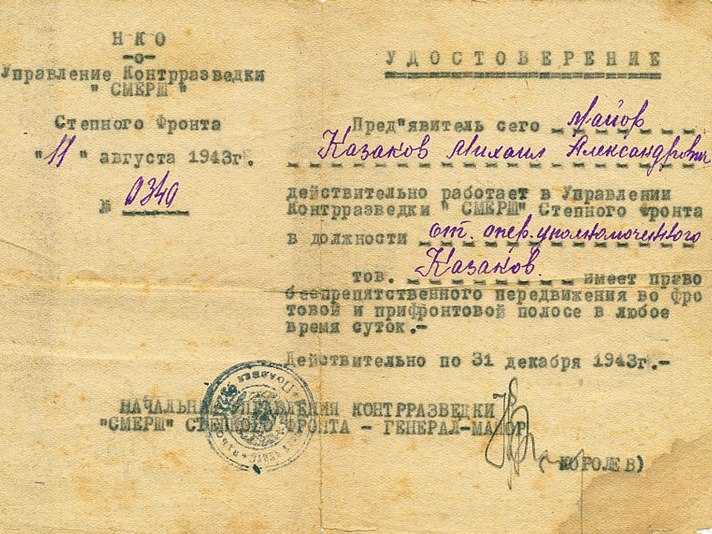 НКО
-о-
Управление Контрразведки
"СМЕРШ"
Степного Фронта
"11" августа 1943г.
№ 0340
УДОСТОВЕРЕНИЕ
Пред"явитель сего майор
Казаков Михаил Александрович
действительно работает в Управлении
Контрразведки "СМЕРШ" Степного Фронта
в должности ст. опер. уполномоченного
Казаков.
тов. имеет право
беспрепятственного передвижения во фро
товой и прифронтовой полосе в любое
время суток.-
Действительно по 31 декабря 1943г.-
НАЧАЛЬНИК УПРАВЛЕНИЯ КОНТРРАЗВЕДКИ
"СМЕРШ" СТЕПНОГО ФРОНТА - ГЕНЕРАЛ-МАЙОР
(КОРОЛЕВ)